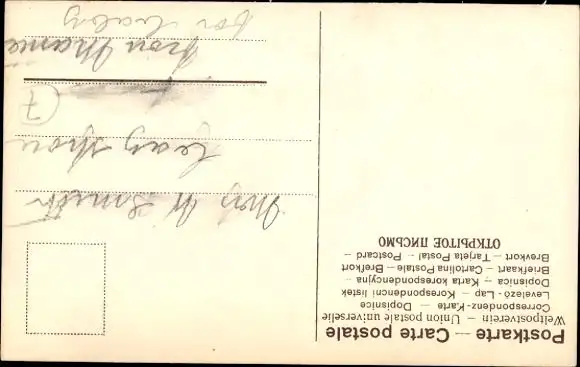 Postkarte — Carte postale
Weltpostverein — Union postale universelle
Correspondenz-Karte — Dopisnice
Levelező-Lap — Korespondencni listek
Dopisnica — Karta korespondencyjna —
Briefkaart — Cartolina Postale — Brefkort
Brevkort — Tarjeta Postal — Postcard —
ОТКРЫТОЕ ПИСЬМО
Smith
(7)
from Mamie
for